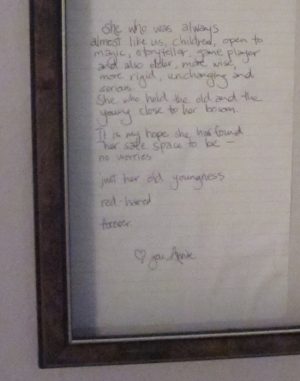 She who was always
almost like us, children, open to
magic, storyteller, game player
and also older, more wise,
more rigid, unchanging and
serious.
She who held the old and the
young close to her bosom.
It is my hope she has found
her safe space to be —
no worries
just her old youngness
red-haired
forever.
♡ you, Annie